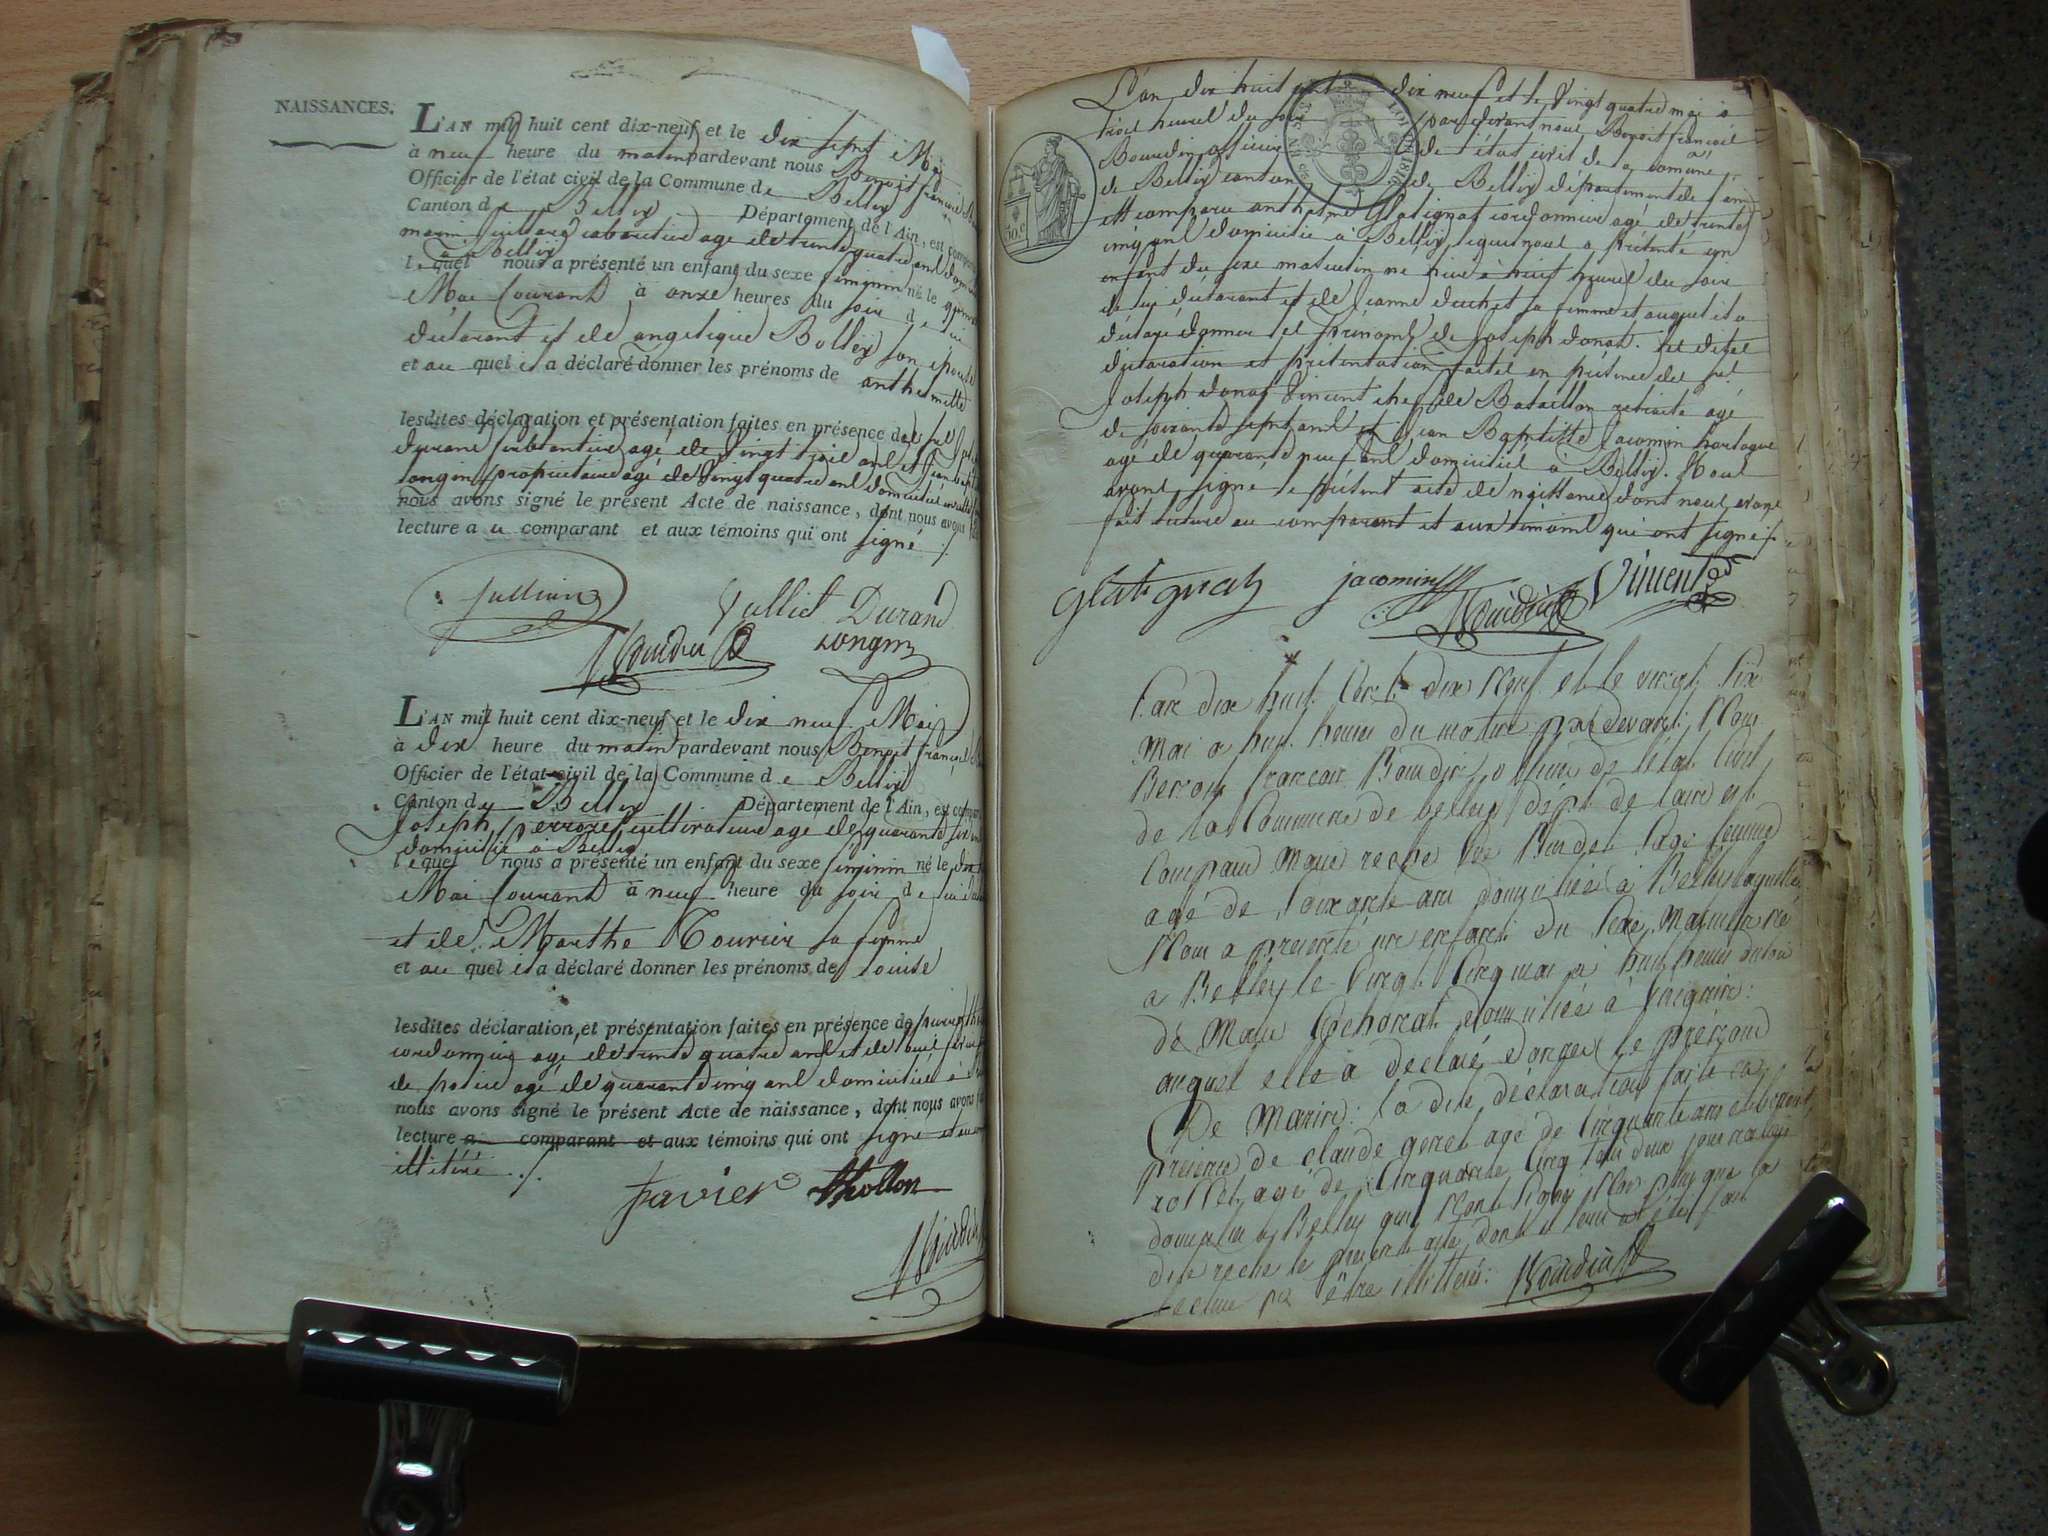 NAISSANCES.
L'AN mil huit cent dix-neuf et le dix sept Mai
à neuf heure du matin pardevant nous Benoit françois
Officier de l'état civil de la Commune de Belley
Canton de Belley Département de l'Ain, est comparu
agé de trente quatre ans
à Belley
lequel nous a présenté un enfant du sexe féminin né le
Mai courant à onze heures du soir de lui
déclarant et de angelique Bolley son épouse
et au quel il a déclaré donner les prénoms de anthelmette
lesdites déclaration et présentation faites en présence des srs
durand agé de vingt trois ans et jean
longin propriétaire agé de vingt quatre ans domiciliés
nous avons signé le présent Acte de naissance, dont nous avons
lecture au comparant et aux témoins qui ont signé ./.
Jullien Julliet Durand
Bourdin longin
L'AN mil huit cent dix-neuf et le dix neuf Mai
à dix heure du matin pardevant nous Benoit françois
Officier de l'état civil de la Commune de Belley
Canton de Belley Département de l'Ain, est comparu
Joseph cultivateur agé de quarante
domicilié à Belley
lequel nous a présenté un enfant du sexe féminin né le dix
Mai courant à neuf heure du soir de lui
et de Marthe Tourier sa femme
et au quel il a déclaré donner les prénoms de Louise
lesdites déclaration, et présentation faites en présence de pierre
cordonnier agé de trente quatre ans et de
de police agé de quarante cinq ans domiciliés à
nous avons signé le présent Acte de naissance, dont nous avons
lecture a comparant et aux témoins qui ont signé
illitéré ./.
favier thollon
Bourdin
L'an dix huit cent dix neuf et le Vingt quatre mai à
trois heures du soir pardevant nous Benoit françois
Bourdin officier de l'état civil de la comune
de Belley canton de Belley département de l'ain
est comparu anthelme Glatignat cordonnier agé de trente
cinq ans domicilié à Belley, lequel nous a présenté un
enfant du sexe masculin né hier à huit heures du soir
de lui déclarant et de Jeanne duchet sa femme et auquel il a
déclaré donner les prénoms de Joseph donat. les dites
déclaration et présentation faites en présence des srs
Joseph donat Vincent chef de Bataillon retraité agé
de soixante sept ans et Jean Baptiste Jacomin horloger
agé de quarante neuf ans domiciliés à Belley. Nous
avons signé le présent acte de naissance dont nous avons
fait lecture au comparant et aux témoins qui ont signé ./.
Glatignat jacomin Bourdin Vincent
L'an dix huit Cent dix Neuf et le vingt Six
Mai a huit heures du matin pardevant Nous
Benoit francois Bourdin officier de l'état Civil
de la Commune de belley dépt. de l'ain est
Comparu Marie Bordet Sage femme
agé de Soixante ans domiciliée à Belley laquelle
Nous a présenté un enfant du Sexe Masculin né
a Belley le vingt Cinq mai a huit heures du soir
de Marie Cochonat domiciliée à
auquel elle a declaré donner le prénom
De Marin: la dite déclaration faite en
présence de claude genet agé de Cinquante ans et benoit
rollet, agé de Cinquante Cinq tous deux journaliers
domiciliés a Belley qui n'ont Signé Non plus que la
dite le présent acte, dont il leur a été fait
lecture pr être illitérés: Bourdin